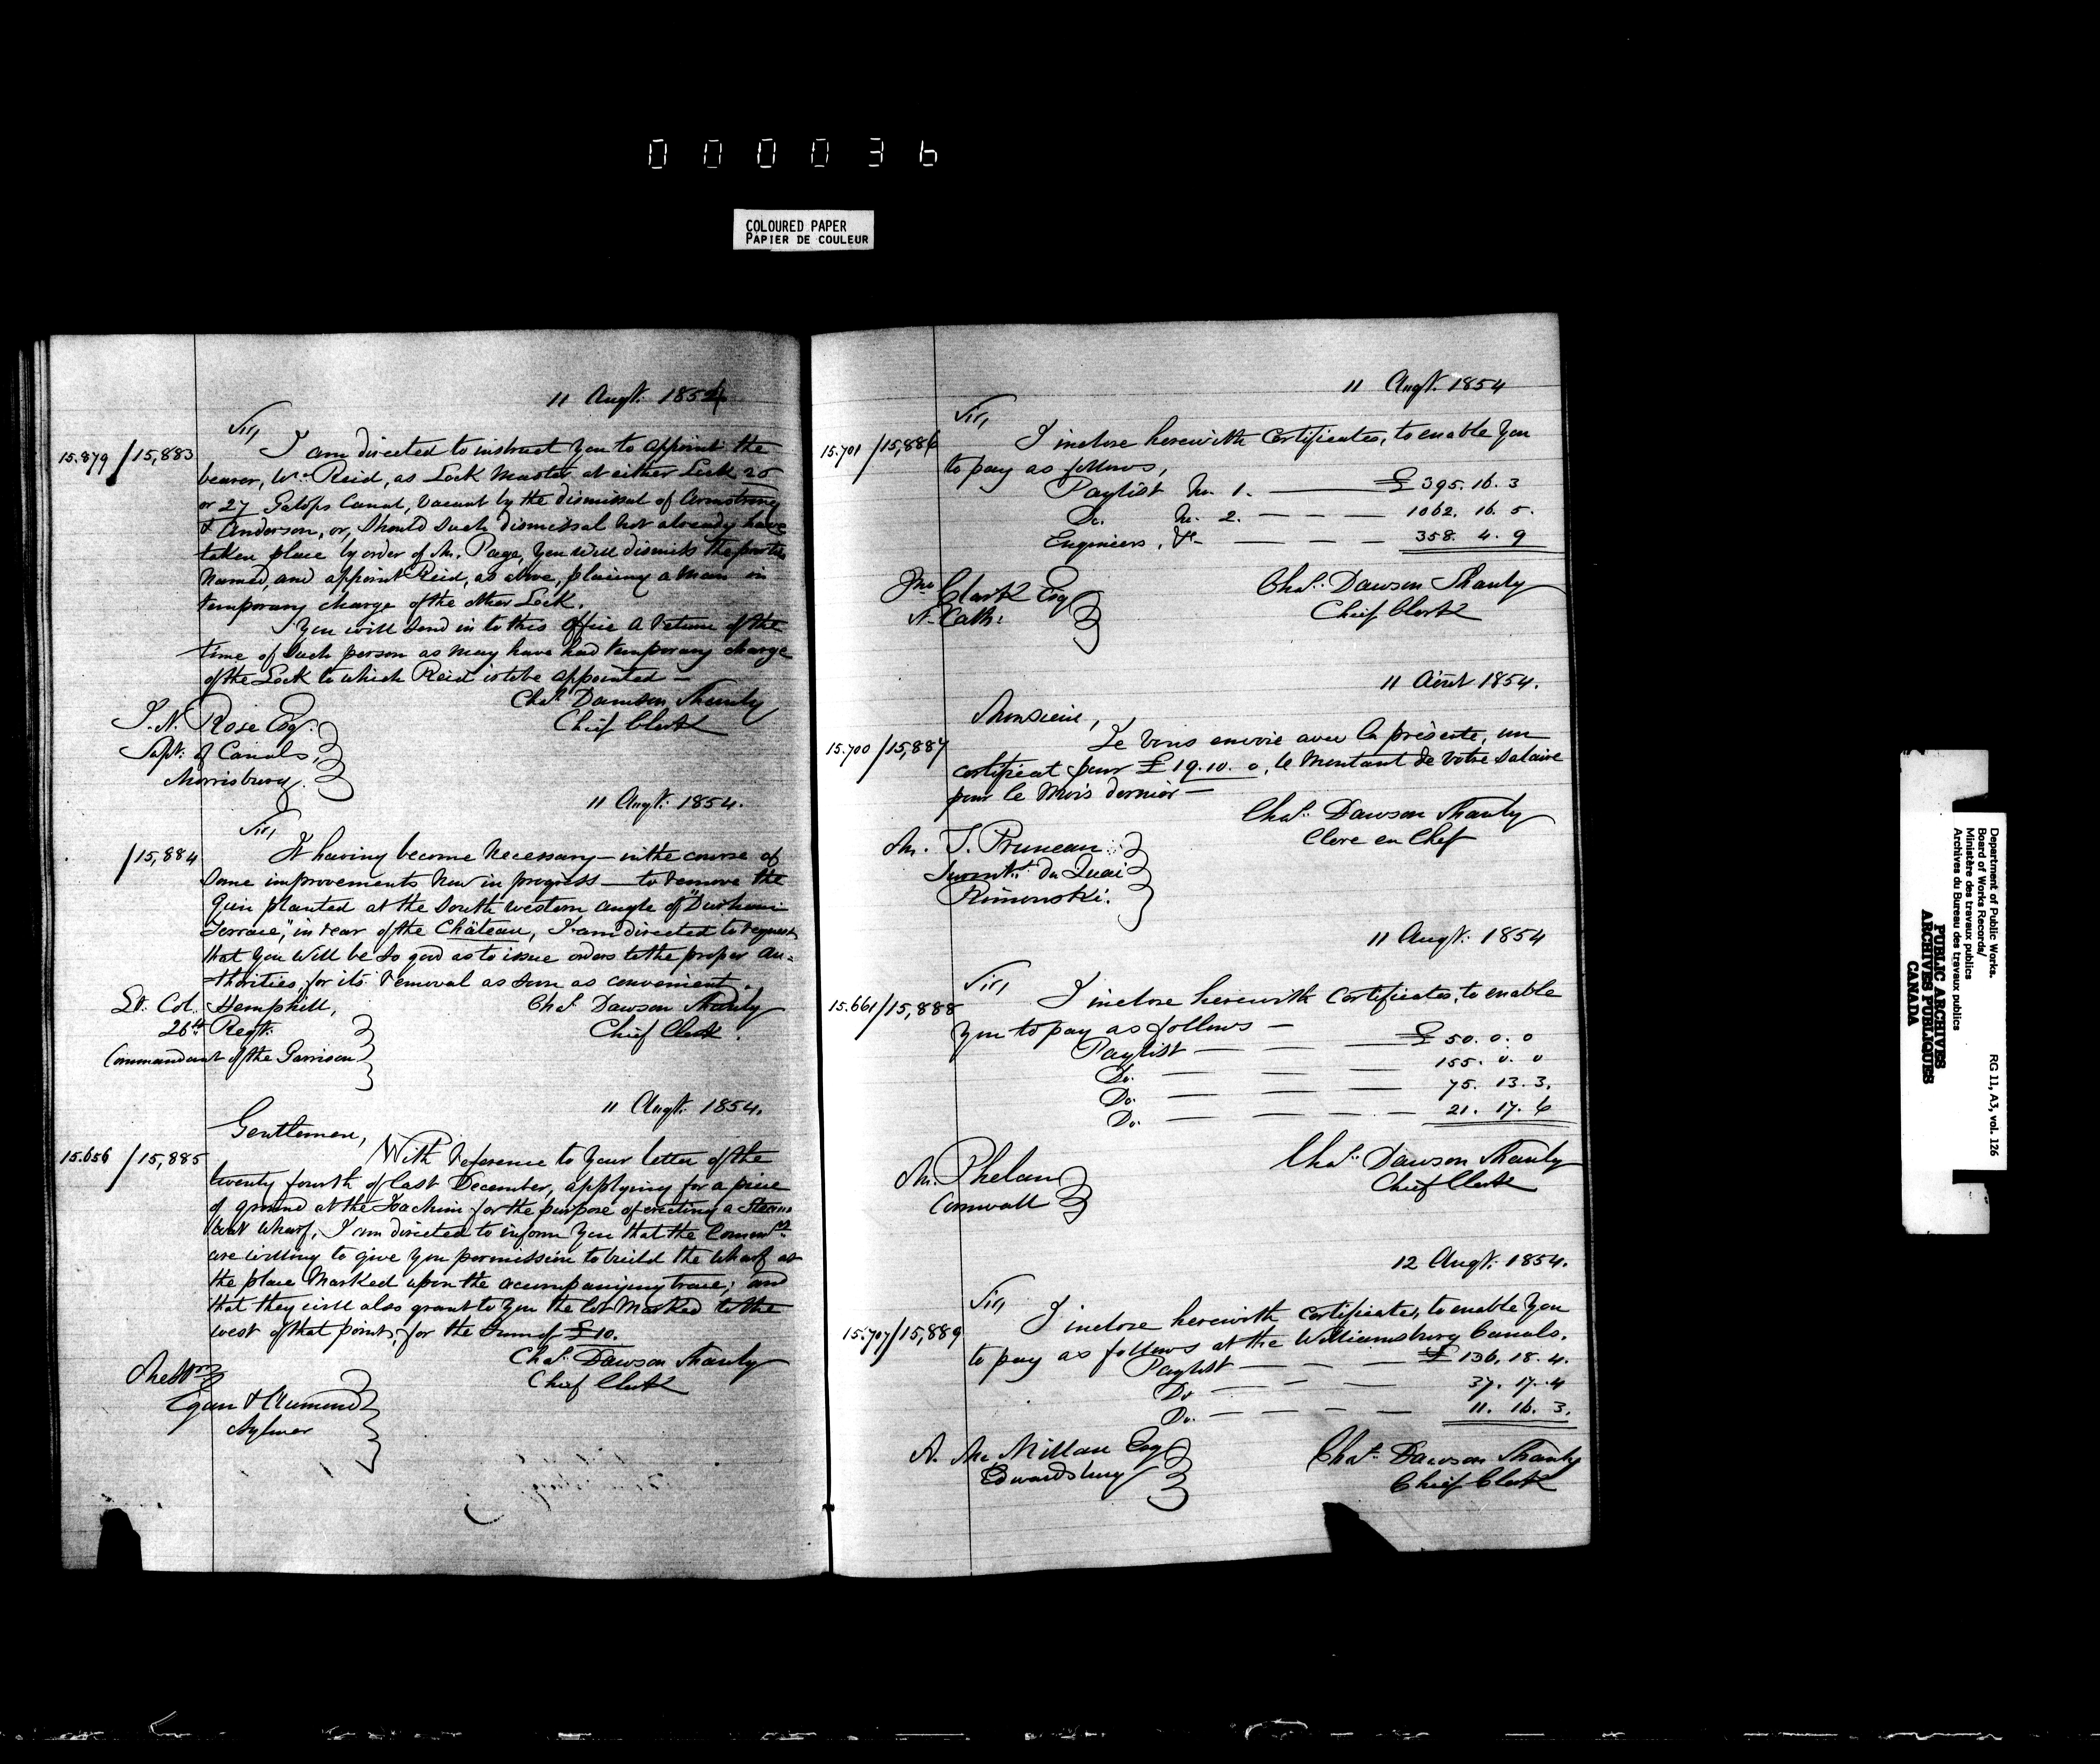 000036
COLOURED PAPER
PAPIER DE COULEUR
11 Augt. 1854
Sir,
15.879 / 15,883
I am directed to instruct you to appoint the
bearer, Wm. Reid, as Lock Master at either Lock 25
or 27 Galops Canal, vacant by the dismissal of Armstrong
& Anderson, or, should such dismissal not already have
taken place by order of Mr. Page, you will dismiss the parties
named, and appoint Reid, as above, placing a man in
temporary charge of the other Lock.
You will send in to this office a return of the
time of such person as may have had temporary charge
of the Lock to which Reid is to be appointed —
Chas. Dawson Shanly
Chief Clerk
I. N. Rose Esq.
Supt. of Canals,
Morrisburg.
11 Augt. 1854.
Sir,
/ 15,884
It having become necessary — in the course of
some improvements now in progress — to remove the
Gun planted at the South western angle of "Durham
Terrace", in rear of the Château, I am directed to request
that you will be so good as to issue orders to the proper au=
=thorities, for its removal as soon as convenient.
Chas. Dawson Shanly
Chief Clerk.
Lt. Col. Hemphill,
26th Regt.
Commandant of the Garrison
11 Augt. 1854.
Gentlemen,
15.656 / 15,885
With reference to your letter of the
twenty fourth of last December, applying for a piece
of ground at the Joachim for the purpose of erecting a Steam
boat Wharf, I am directed to inform you that the Commrs.
are willing to give you permission to build the wharf at
the place marked upon the accompanying trace; and
that they will also grant to you the lot marked to the
west of that point, for the sum of £10.
Chas. Dawson Shanly
Chief Clerk
Messrs
Egan & Aumond
Aylmer
11 Augt. 1854
Sir,
15.701 / 15,886
I inclose herewith Certificates, to enable you
to pay as follows,
Paylist No. 1. — £395.16.3
Do. No. 2. — — — 1062.16.5.
Engineers, &c — — — 358.4.9
Chas. Dawson Shanly
Chief Clerk
Jno Clark Esq
St. Cath:
11 Août 1854.
Monsieur,
15.700 / 15,887
Je vous envoie avec la présente, un
certificat pour £19.10.0, le montant de votre salaire
pour le mois dernier —
Chas. Dawson Shanly
Clerc en Chef
Mr. J. Pruneau
Surintt. du Quai
Rimouski.
11 Augt. 1854
Sir,
15.661 / 15,888
I inclose herewith Certificates, to enable
you to pay as follows —
Paylist — — — £50.0.0
Do. — — — 155.0.0
Do. — — — 75.13.3.
Do. — — — 21.17.6
Chas. Dawson Shanly
Chief Clerk
Mr. Phelan
Cornwall
12 Augt. 1854.
Sir,
15.707 / 15,889
I inclose herewith certificates, to enable you
to pay as follows at the Williamsburg Canals.
Paylist — — — £136.18.4.
Do — — — 37.17.4
Do. — — — 11.16.3.
Chas. Dawson Shanly
Chief Clerk
A. McMillan Esq
Edwardsburg
Department of Public Works.
Board of Works Records/
Ministère des travaux publics
Archives du Bureau des travaux publics
RG 11, A3, vol. 126
PUBLIC ARCHIVES
ARCHIVES PUBLIQUES
CANADA